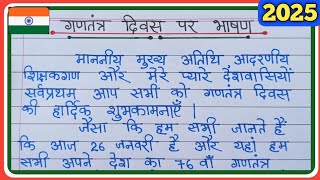 2025
गणतंत्र दिवस पर भाषण
माननीय मुख्य अतिथि आदरणीय
शिक्षकगण और मेरे प्यारे देशवासियों
सर्वप्रथम आप सभी को गणतंत्र दिवस
की हार्दिक शुभकामनाएँ |
जैसा कि हम सभी जानते हैं
कि आज 26 जनवरी है और यहां हम
सभी अपने देश का 76 वाँ गणतंत्र